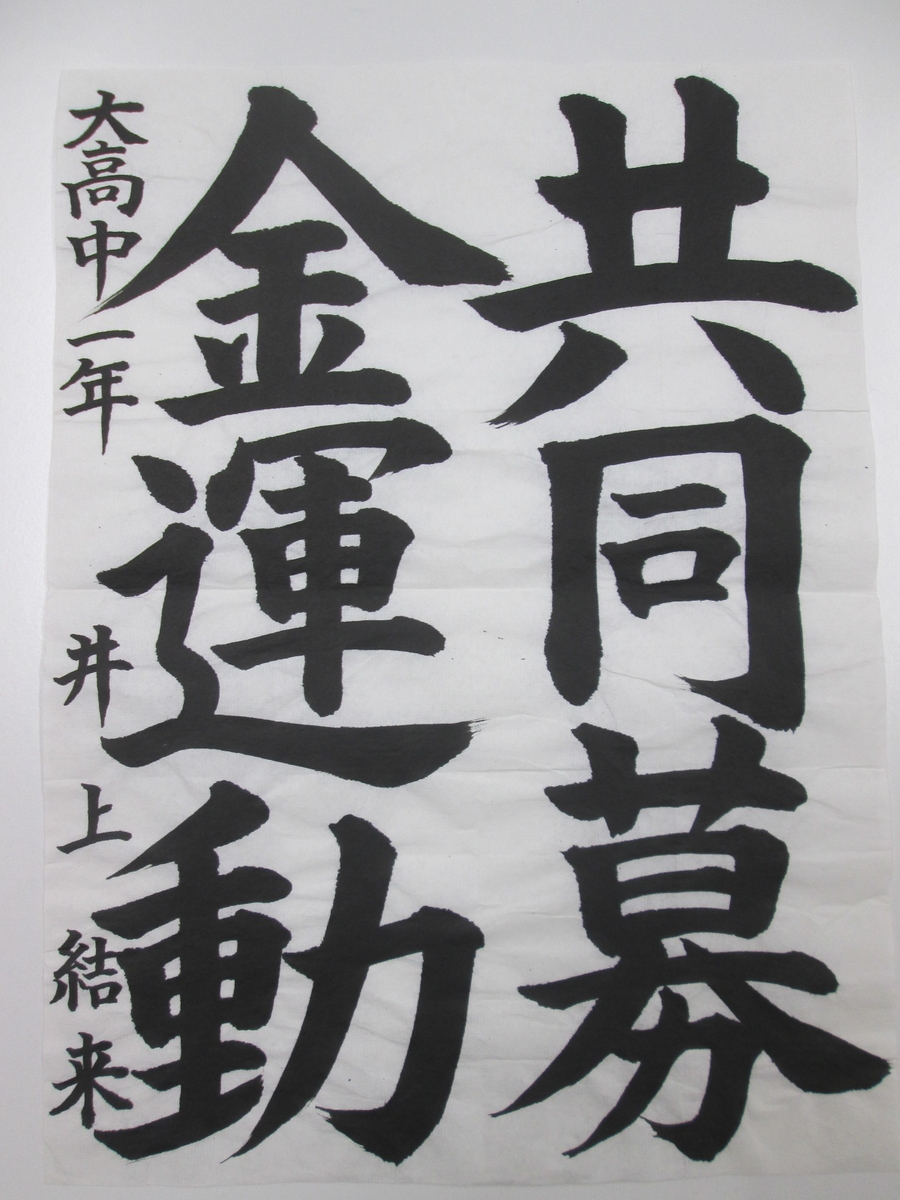 共同募
金運動
大高中一年 井上結来